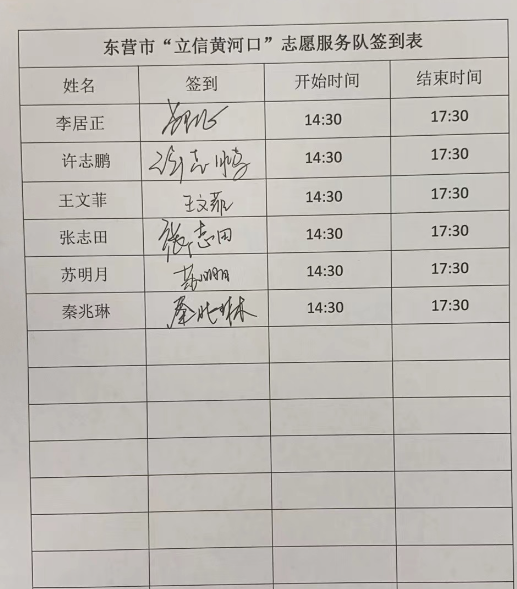 东营市“立信黄河口”志愿服务队签到表
姓名 签到 开始时间 结束时间
李居正 14:30 17:30
许志鹏 许志鹏 14:30 17:30
王文菲 王文菲 14:30 17:30
张志田 张志田 14:30 17:30
苏明月 苏明月 14:30 17:30
秦兆琳 秦兆琳 14:30 17:30